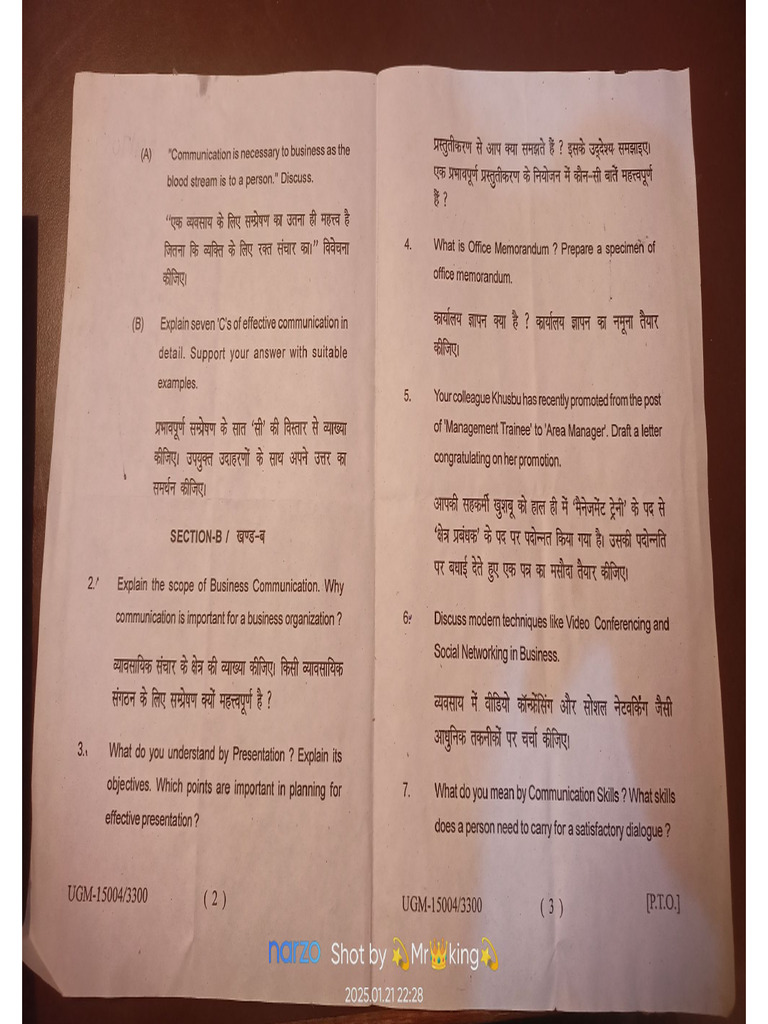 (A) "Communication is necessary to business as the
blood stream is to a person." Discuss.
"एक व्यवसाय के लिए सम्प्रेषण का उतना ही महत्त्व है
जितना कि व्यक्ति के लिए रक्त संचार का।" विवेचना
कीजिए।
(B) Explain seven 'C's of effective communication in
detail. Support your answer with suitable
examples.
प्रभावपूर्ण सम्प्रेषण के सात 'सी' की विस्तार से व्याख्या
कीजिए। उपयुक्त उदाहरणों के साथ अपने उत्तर का
समर्थन कीजिए।
SECTION-B / खण्ड-ब
2. Explain the scope of Business Communication. Why
communication is important for a business organization ?
व्यावसायिक संचार के क्षेत्र की व्याख्या कीजिए। किसी व्यावसायिक
संगठन के लिए सम्प्रेषण क्यों महत्त्वपूर्ण है ?
3. What do you understand by Presentation ? Explain its
objectives. Which points are important in planning for
effective presentation ?
UGM-15004/3300 ( 2 )
प्रस्तुतीकरण से आप क्या समझते हैं ? इसके उद्देश्य समझाइए।
एक प्रभावपूर्ण प्रस्तुतीकरण के नियोजन में कौन-सी बातें महत्त्वपूर्ण
हैं ?
4. What is Office Memorandum ? Prepare a specimen of
office memorandum.
कार्यालय ज्ञापन क्या है ? कार्यालय ज्ञापन का नमूना तैयार
कीजिए।
5. Your colleague Khusbu has recently promoted from the post
of 'Management Trainee' to 'Area Manager'. Draft a letter
congratulating on her promotion.
आपकी सहकर्मी खुशबू को हाल ही में 'मैनेजमेंट ट्रेनी' के पद से
'क्षेत्र प्रबंधक' के पद पर पदोन्नत किया गया है। उसकी पदोन्नति
पर बधाई देते हुए एक पत्र का मसौदा तैयार कीजिए।
6. Discuss modern techniques like Video Conferencing and
Social Networking in Business.
व्यवसाय में वीडियो कॉन्फ्रेंसिंग और सोशल नेटवर्किंग जैसी
आधुनिक तकनीकों पर चर्चा कीजिए।
7. What do you mean by Communication Skills ? What skills
does a person need to carry for a satisfactory dialogue ?
UGM-15004/3300 ( 3 ) [P.T.O.]
narzo Shot by 💫Mr👑king💫
2025.01.21 22:28